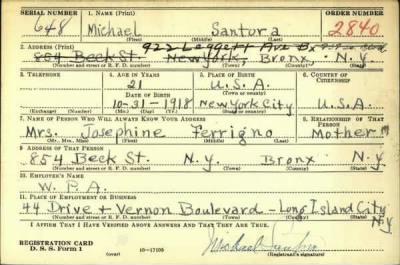 SERIAL NUMBER 1. NAME (Print) ORDER NUMBER
648 Michael Santora 2840
(First) (Middle) (Last)
922 Leggett Ave Bx
2. ADDRESS (Print)
854 Beck St. New York, Bronx N.Y.
(Number and street or R. F. D. number) (Town) (County) (State)
3. TELEPHONE 4. AGE IN YEARS 5. PLACE OF BIRTH 6. COUNTRY OF CITIZENSHIP
21 U.S.A.
DATE OF BIRTH
10-31-1918 New York City U.S.A.
(Exchange) (Number) (Mo.) (Day) (Yr.) (Town or county) (State or country)
7. NAME OF PERSON WHO WILL ALWAYS KNOW YOUR ADDRESS 8. RELATIONSHIP OF THAT PERSON
Mrs. Josephine Ferrigno Mother
(Mr., Mrs., Miss) (First) (Middle) (Last)
9. ADDRESS OF THAT PERSON
854 Beck St. N.Y. Bronx N.Y.
(Number and street or R. F. D. number) (Town) (County) (State)
10. EMPLOYER'S NAME
W.P.A.
11. PLACE OF EMPLOYMENT OR BUSINESS
44 Drive + Vernon Boulevard - Long Island City N.Y.
(Number and street or R. F. D. number) (Town) (County) (State)
I AFFIRM THAT I HAVE VERIFIED ABOVE ANSWERS AND THAT THEY ARE TRUE.
REGISTRATION CARD
D. S. S. Form 1 (over) 16-17105 Michael Santora
(Registrant's signature)